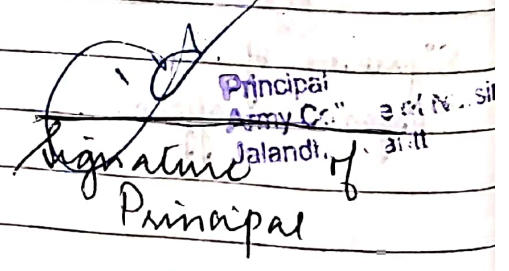 Principal
Army
Jalandh
Signature of
Principal